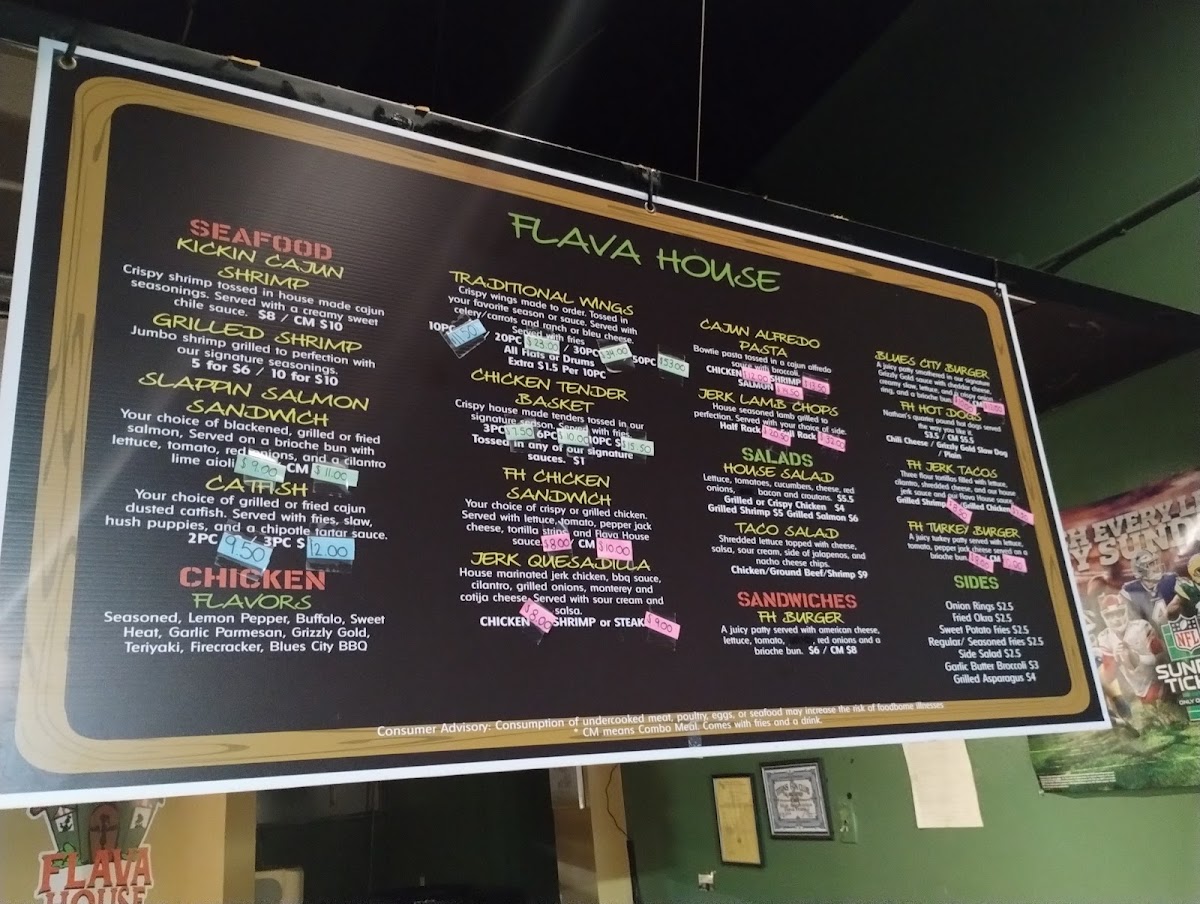 FLAVA HOUSE
SEAFOOD
KICKIN CAJUN
SHRIMP
Crispy shrimp tossed in house made cajun
seasonings. Served with a creamy sweet
chile sauce. $8 / CM $10
GRILLED SHRIMP
Jumbo shrimp grilled to perfection with
our signature seasonings.
5 for $6 / 10 for $10
SLAPPIN SALMON
SANDWICH
Your choice of blackened, grilled or fried
salmon, Served on a brioche bun with
lettuce, tomato, red onions, and a cilantro
lime aioli $9.00 CM $11.00
CATFISH
Your choice of grilled or fried cajun
dusted catfish. Served with fries, slaw,
hush puppies, and a chipotle tartar sauce.
2PC 9.50 /3PC $ 12.00
CHICKEN
FLAVORS
Seasoned, Lemon Pepper, Buffalo, Sweet
Heat, Garlic Parmesan, Grizzly Gold,
Teriyaki, Firecracker, Blues City BBQ
TRADITIONAL WINGS
Crispy wings made to order. Tossed in
your favorite season or sauce. Served with
celery/carrots and ranch or bleu cheese.
Served with fries
10PC 11.50 20PC $23.00 / 30PC $34.00 50PC $53.00
All Flats or Drums
Extra $1.5 Per 10PC
CHICKEN TENDER
BASKET
Crispy house made tenders tossed in our
signature season. Served with fries.
3PC $7.50 6PC $10.00 10PC $15.50
Tossed in any of our signature
sauces. $1
FH CHICKEN
SANDWICH
Your choice of crispy or grilled chicken.
Served with lettuce, tomato, pepper jack
cheese, tortilla strips and Flava House
sauce $8.00 / CM $10.00
JERK QUESADILLA
House marinated jerk chicken, bbq sauce,
cilantro, grilled onions, monterey and
cotija cheese. Served with sour cream and
salsa.
CHICKEN $8.00 SHRIMP or STEAK $9.00
CAJUN ALFREDO
PASTA
Bowtie pasta tossed in a cajun alfredo
sauce with broccoli.
CHICKEN $12.00 SHRIMP
SALMON
JERK LAMB CHOPS
House seasoned lamb grilled to
perfection. Served with your choice of side.
Half Rack Full Rack $32.00
SALADS
HOUSE SALAD
Lettuce, tomatoes, cucumbers, cheese, red
onions, bacon and croutons. $5.5
Grilled or Crispy Chicken $4
Grilled Shrimp $5 Grilled Salmon $6
TACO SALAD
Shredded lettuce topped with cheese,
salsa, sour cream, side of jalapenos, and
nacho cheese chips.
Chicken/Ground Beef/Shrimp $9
SANDWICHES
FH BURGER
A juicy patty served with american cheese,
lettuce, tomato, red onions and a
brioche bun. $6 / CM $8
BLUES CITY BURGER
A juicy patty smothered in our signature
Grizzly Gold sauce with cheddar cheese,
creamy slaw, lettuce, and a crispy onion
ring, and a brioche bun CM
FH HOT DOGS
Nathan's quarter pound hot dogs served
the way you like it.
$3.5 / CM $5.5
Chili Cheese / Grizzly Gold Slaw Dog
/ Plain
FH JERK TACOS
Three flour tortillas filled with lettuce,
cilantro, shredded cheese, and our house
jerk sauce and our Flava House sauce
Grilled Shrimp Grilled Chicken
FH TURKEY BURGER
A juicy turkey patty served with lettuce,
tomato, pepper jack cheese served on a
brioche bun CM
SIDES
Onion Rings $2.5
Fried Okra $2.5
Sweet Potato Fries $2.5
Regular/ Seasoned Fries $2.5
Side Salad $2.5
Garlic Butter Broccoli $3
Grilled Asparagus $4
Consumer Advisory: Consumption of undercooked meat, poultry, eggs, or seafood may increase the risk of foodborne illnesses
* CM means Combo Meal. Comes with fries and a drink.
FLAVA
HOUSE
NFL